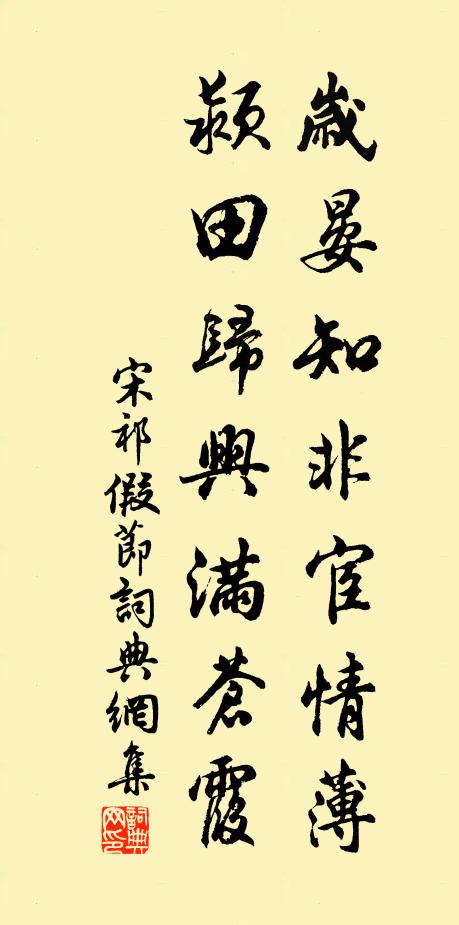 歲晏知非宦情薄
潁田歸興滿蒼霞
宋祁假節詞典網集
詞典网印